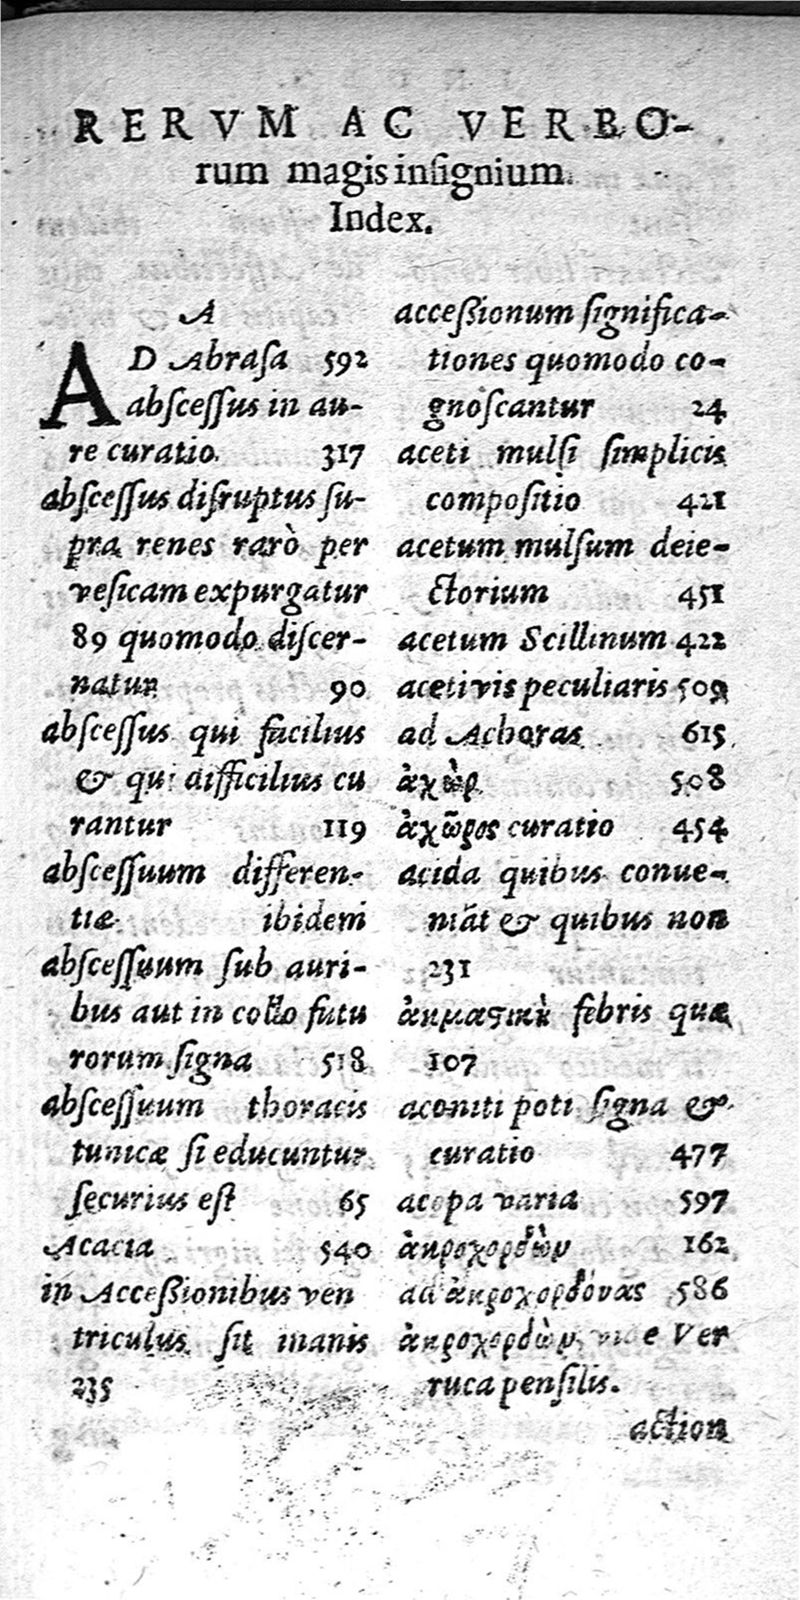 RERVM AC VERBO-
rum magis insignium.
Index.
A
AD Abrasa 592
abscessus in au-
re curatio. 317
abscessus disruptus su-
pra renes rarò per
vesicam expurgatur
89 quomodo discer-
natur 90
abscessus qui facilius
& qui difficilius cu
rantur 119
abscessuum differen-
tiæ ibidem
abscessuum sub auri-
bus aut in collo futu
rorum signa 518
abscessuum thoracis
tunicæ si educuntur
securius est 65
Acacia 540
in Accessionibus ven
triculus sit inanis
235
accessionum significa-
tiones quomodo co-
gnoscantur 24
aceti mulsi simplicis
compositio 421
acetum mulsum deie-
ctorium 451
acetum Scillinum 422
aceti vis peculiaris 509
ad Achoras 615
ἀχὼρ 508
ἀχῶρος curatio 454
acida quibus conue-
niāt & quibus non
231
ἀκμαστικὴ febris quæ
107
aconiti poti signa &
curatio 477
acopa varia 597
ἀκροχορδὼν 162
ad ἀκροχορδόνας 586
ἀκροχορδὼν, vide Ver
ruca pensilis.
action